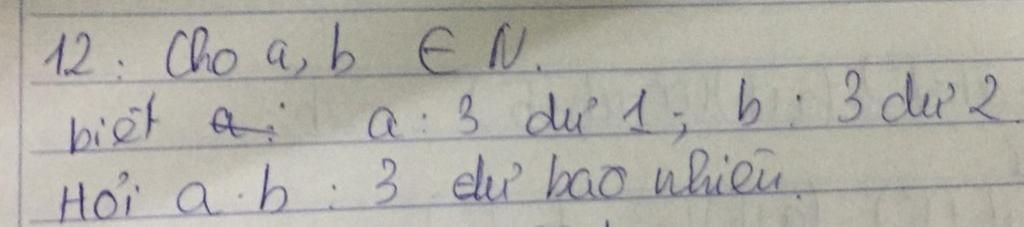 12: Cho a, b ∈ N.
biết a : 3 dư 1; b : 3 dư 2.
Hỏi a.b : 3 dư bao nhiêu.